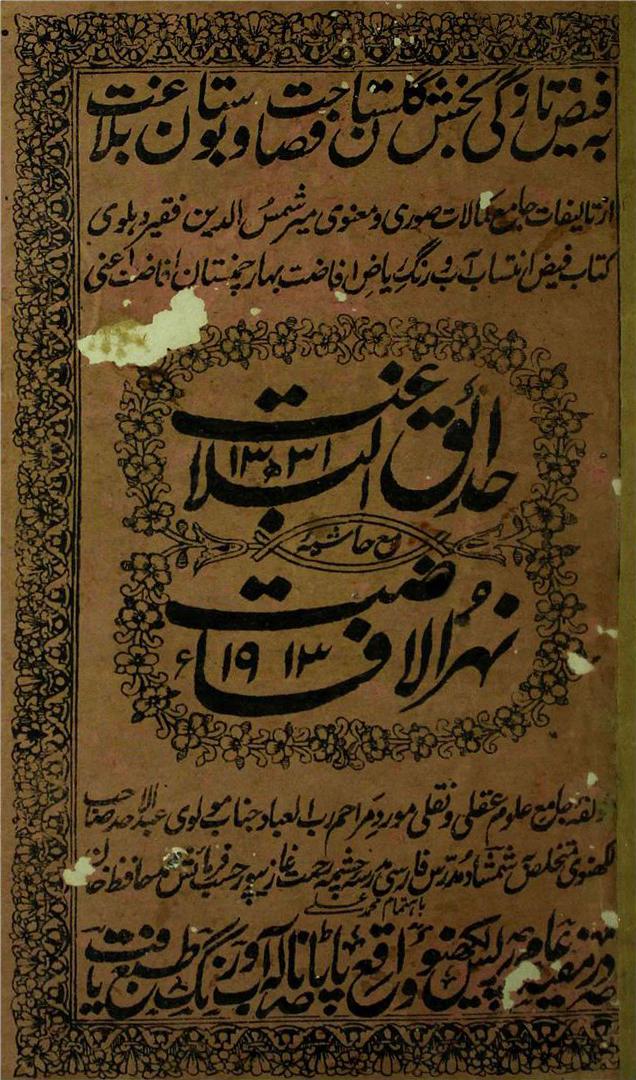 بہ فیض تازگی بخش گلستان فصاحت و بوستان بلاغت
از تالیفات جامع کمالات صوری و معنوی میر شمس الدین فقیر دہلوی
کتاب فیض انتساب آب و رنگ ریاض افاضت بہار چمنستان افاضت اعنی
حدائق البلاغت
۱۳۳۱ھ
مع حاشیہ
نہر الافاضت
۱۹۱۳ء
مولفہ جامع علوم عقلی و نقلی مورد مراحم رب العباد جناب مولوی عبد الاحد صاحب
لکھنوی متخلص شمشاد مدرس فارسی مدرسہ چشمہ رحمت غازیپور حسب فرمائش محافظ خان
باہتمام محمد علی
در مفید عام پریس لکھنؤ واقع پاٹانالہ آب و رنگ طبع یافت